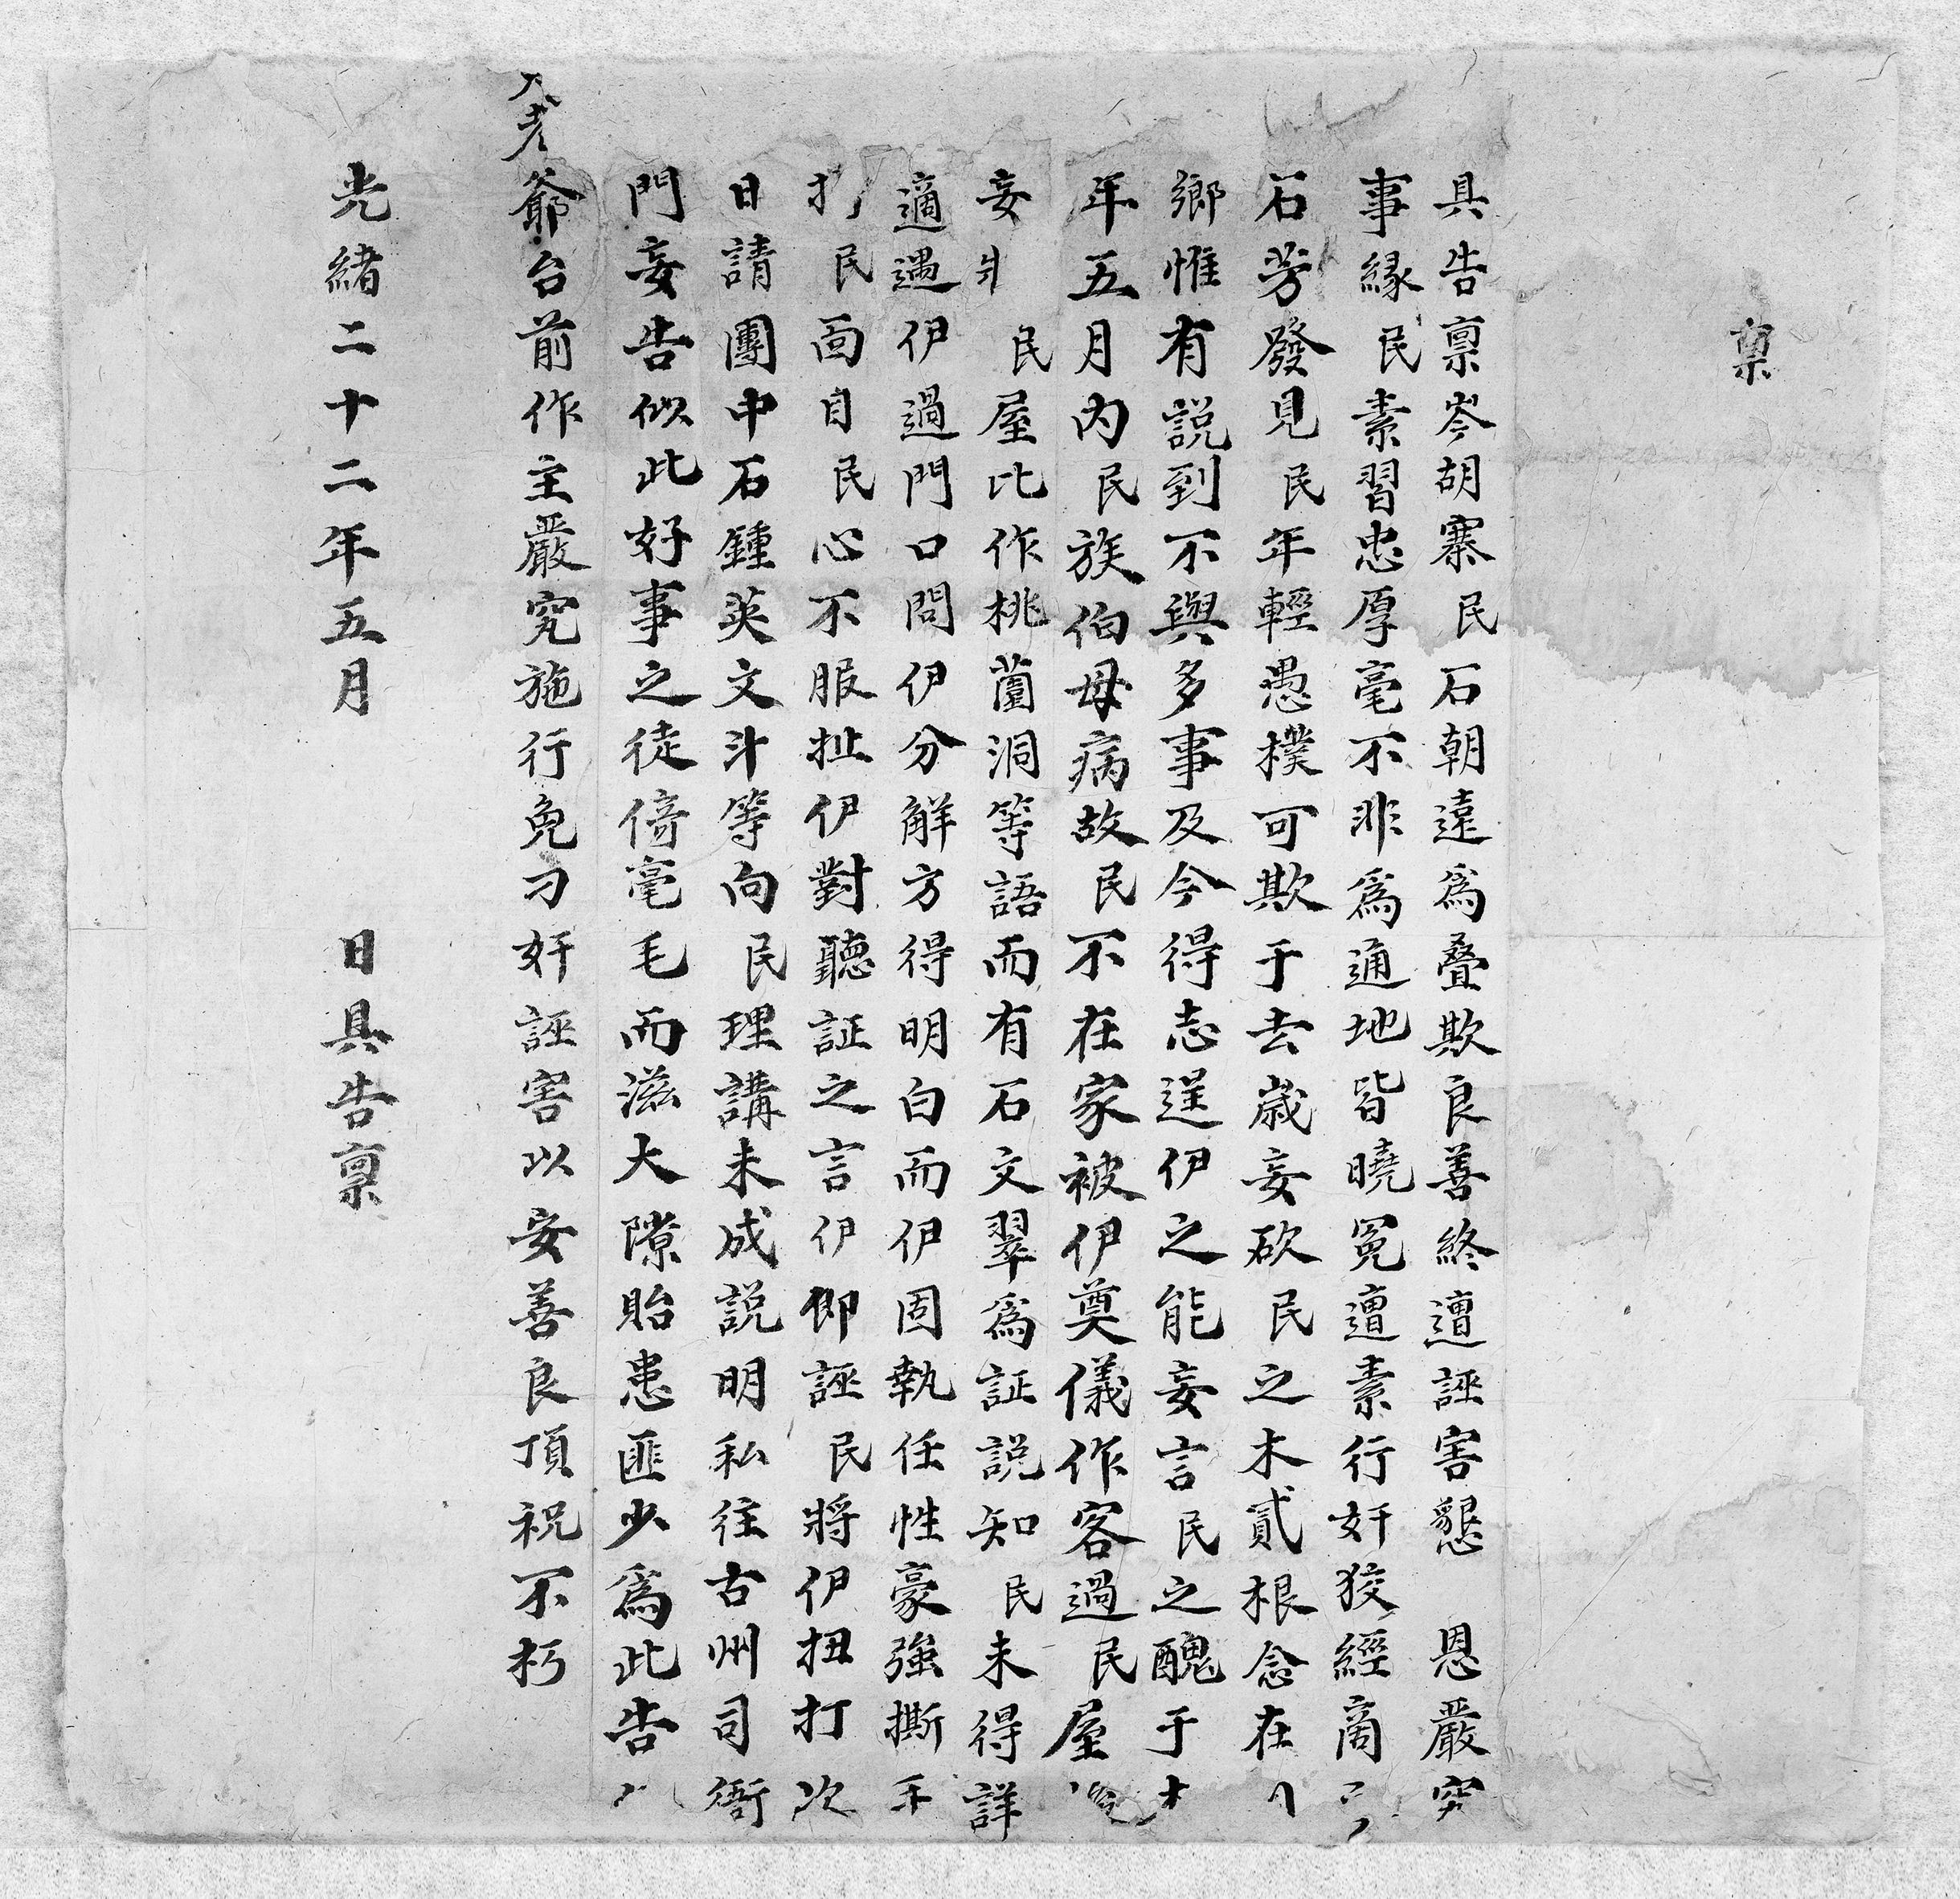 稟
具告稟岑胡寨民石朝遠為疊欺良善終遭誣害懇恩嚴究
事緣民素習忠厚毫不非為通地皆曉冤遭素行奸狡經商
石芳發見民年輕愚樸可欺于去歲妄砍民之木貳根念在
鄉惟有説到不與多事及今得志逞伊之能妄言民之醜于
年五月內民族伯母病故民不在家被伊奠儀作客過民屋
妄民屋比作桃薗洞等語而有石文翠為証説知民未得詳
適遇伊過門口問伊分解方得明白而伊固執任性豪強撕
民面自民心不服扯伊對聽証之言伊仰誣民將伊扭打次
日請團中石鍾英文斗等向民理講未成説明私往古州司衙
門妄告似此好事之徒倚毫毛而滋大隙貽患匪少為此告
大老爺台前作主嚴究施行免刁奸誣害以安善良頂祝不朽
光緒二十二年五月日具告稟